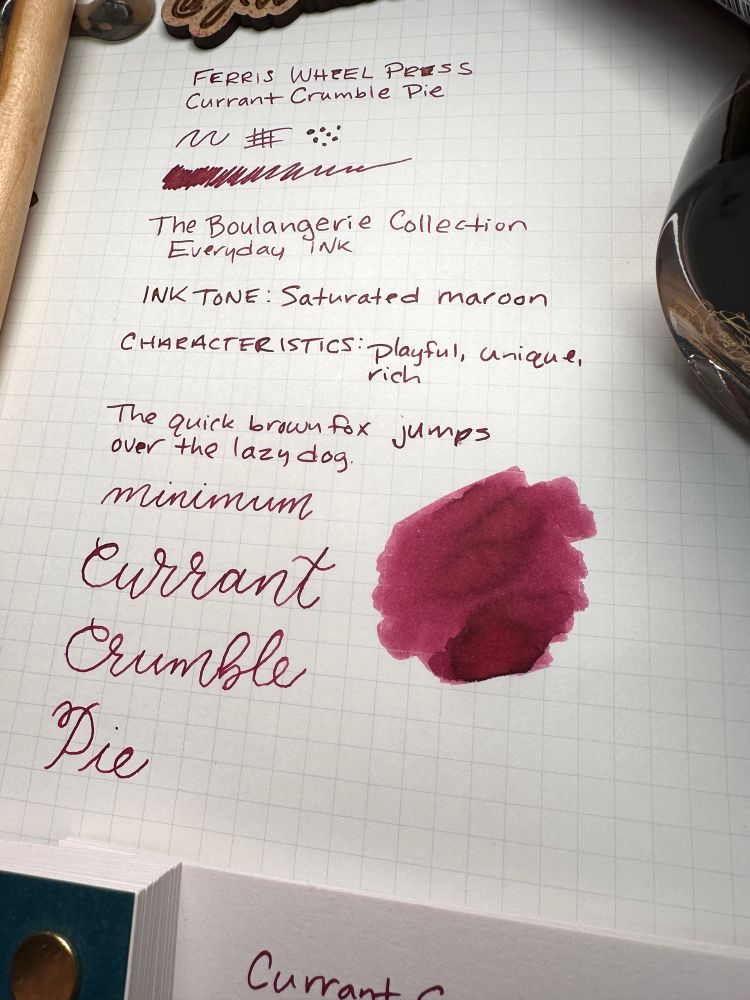 FERRIS WHEEL PRESS
Currant Crumble Pie
The Boulangerie Collection
Everyday INK
INK TONE: Saturated maroon
CHARACTERISTICS: playful, unique,
rich
The quick brown fox jumps
over the lazy dog.
minimum
Currant
Crumble
Pie
Currant C